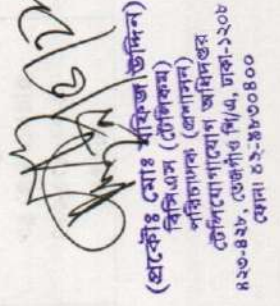 (প্রকৌঃ মোঃ মফিজ উদ্দিন)
বিসিএস (টেলিকম)
পরিচালক (প্রশাসন)
টেলিযোগাযোগ অধিদপ্তর
৪২৩-৪২৮, তেজগাঁও শি/এ, ঢাকা-১২০৮
ফোনঃ ৪১-৪৮৩০৪০০